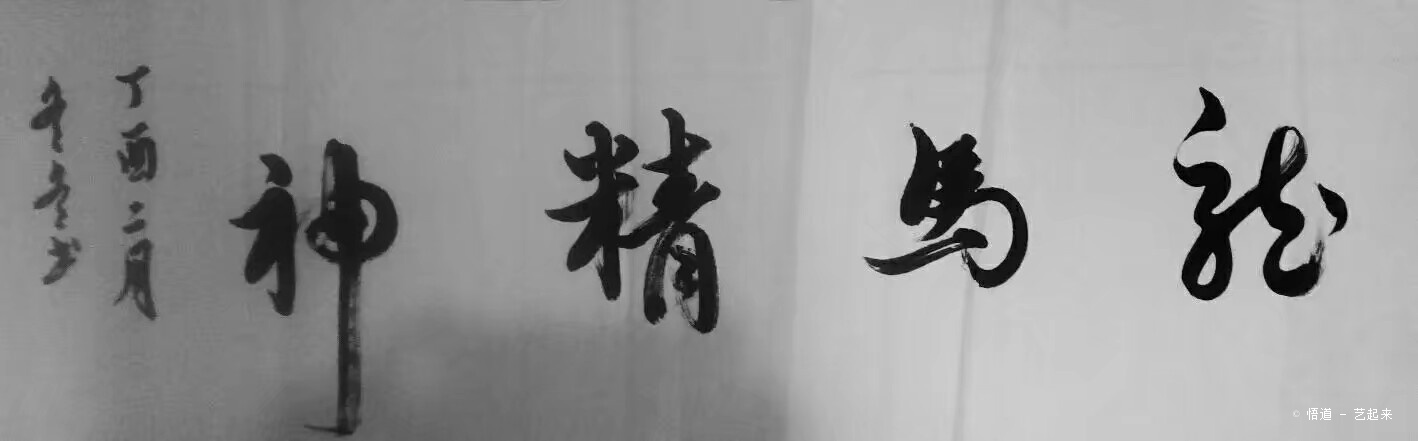 龍馬精神
丁酉二月
书
© 悟道 - 艺起来